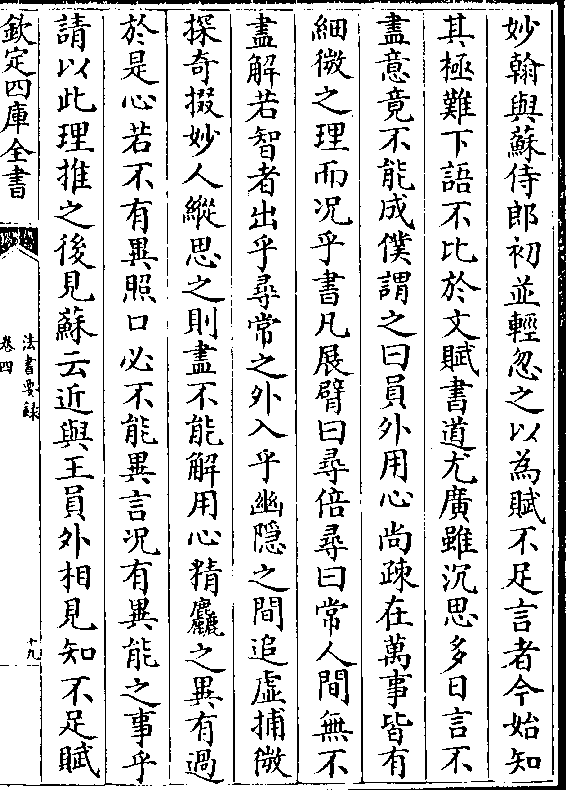 妙翰與蘇侍郎初並輕忽之以為賦不足言者今始知
其極難下語不比於文賦書道尤廣雖沉思多日言不
盡意竟不能成僕謂之曰員外用心尚疎在萬事皆有
細微之理而况乎書凡展臂曰尋倍尋曰常人間無不
盡解若智者出乎尋常之外入乎幽隠之間追虛捕微
探奇掇妙人縱思之則盡不能解用心精麤之異有過
於是心若不有異照口必不能異言况有異能之事乎
請以此理推之後見蘇云近與王員外相見知不足賦
欽定四庫全書
法書要錄
卷四
十九